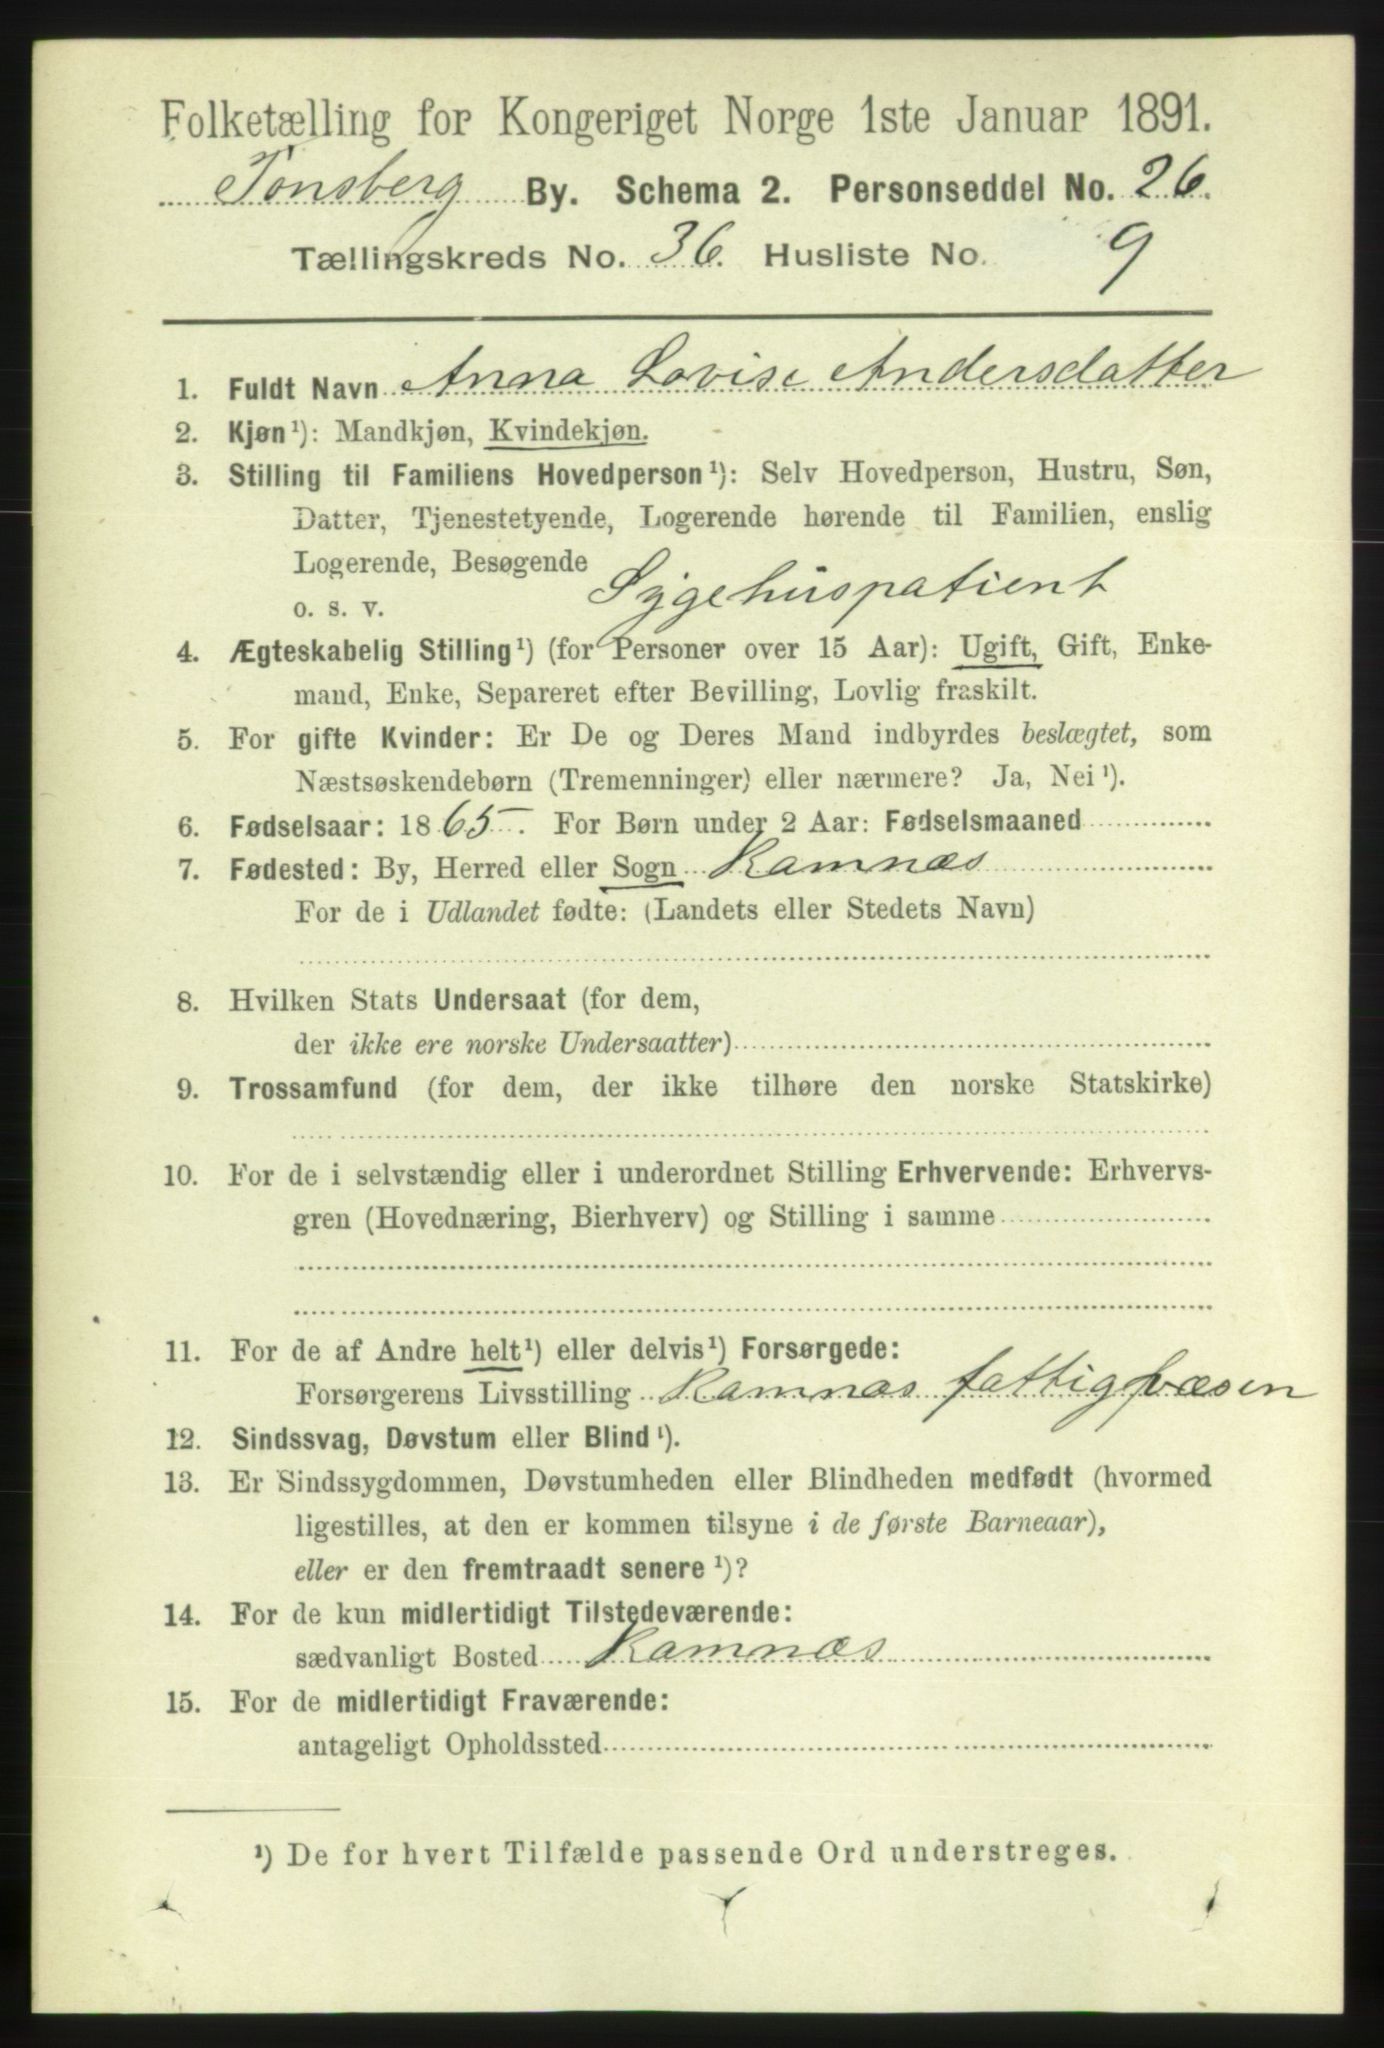 Folketælling for Kongeriget Norge 1ste Januar 1891.
Tønsberg By. Schema 2. Personseddel No. 26.
Tællingskreds No. 36. Husliste No. 9
1. Fuldt Navn Anna Lovise Andersdatter
2. Kjøn¹): Mandkjøn, Kvindekjøn.
3. Stilling til Familiens Hovedperson¹): Selv Hovedperson, Hustru, Søn,
Datter, Tjenestetyende, Logerende hørende til Familien, enslig
Logerende, Besøgende
o. s. v. Sygehuspatient
4. Ægteskabelig Stilling¹) (for Personer over 15 Aar): Ugift, Gift, Enke-
mand, Enke, Separeret efter Bevilling, Lovlig fraskilt.
5. For gifte Kvinder: Er De og Deres Mand indbyrdes beslægtet, som
Næstsøskendebørn (Tremenninger) eller nærmere? Ja, Nei¹).
6. Fødselsaar: 1865. For Børn under 2 Aar: Fødselsmaaned
7. Fødested: By, Herred eller Sogn Ramnæs
For de i Udlandet fødte: (Landets eller Stedets Navn)
8. Hvilken Stats Undersaat (for dem,
der ikke ere norske Undersaatter)
9. Trossamfund (for dem, der ikke tilhøre den norske Statskirke)
10. For de i selvstændig eller i underordnet Stilling Erhvervende: Erhvervs-
gren (Hovednæring, Bierhverv) og Stilling i samme
11. For de af Andre helt¹) eller delvis¹) Forsørgede:
Forsørgerens Livsstilling Ramnæs fattigvæsen
12. Sindssvag, Døvstum eller Blind¹).
13. Er Sindssygdommen, Døvstumheden eller Blindheden medfødt (hvormed
ligestilles, at den er kommen tilsyne i de første Barneaar),
eller er den fremtraadt senere¹)?
14. For de kun midlertidigt Tilstedeværende:
sædvanligt Bosted Ramnæs
15. For de midlertidigt Fraværende:
antageligt Opholdssted
¹) De for hvert Tilfælde passende Ord understreges.